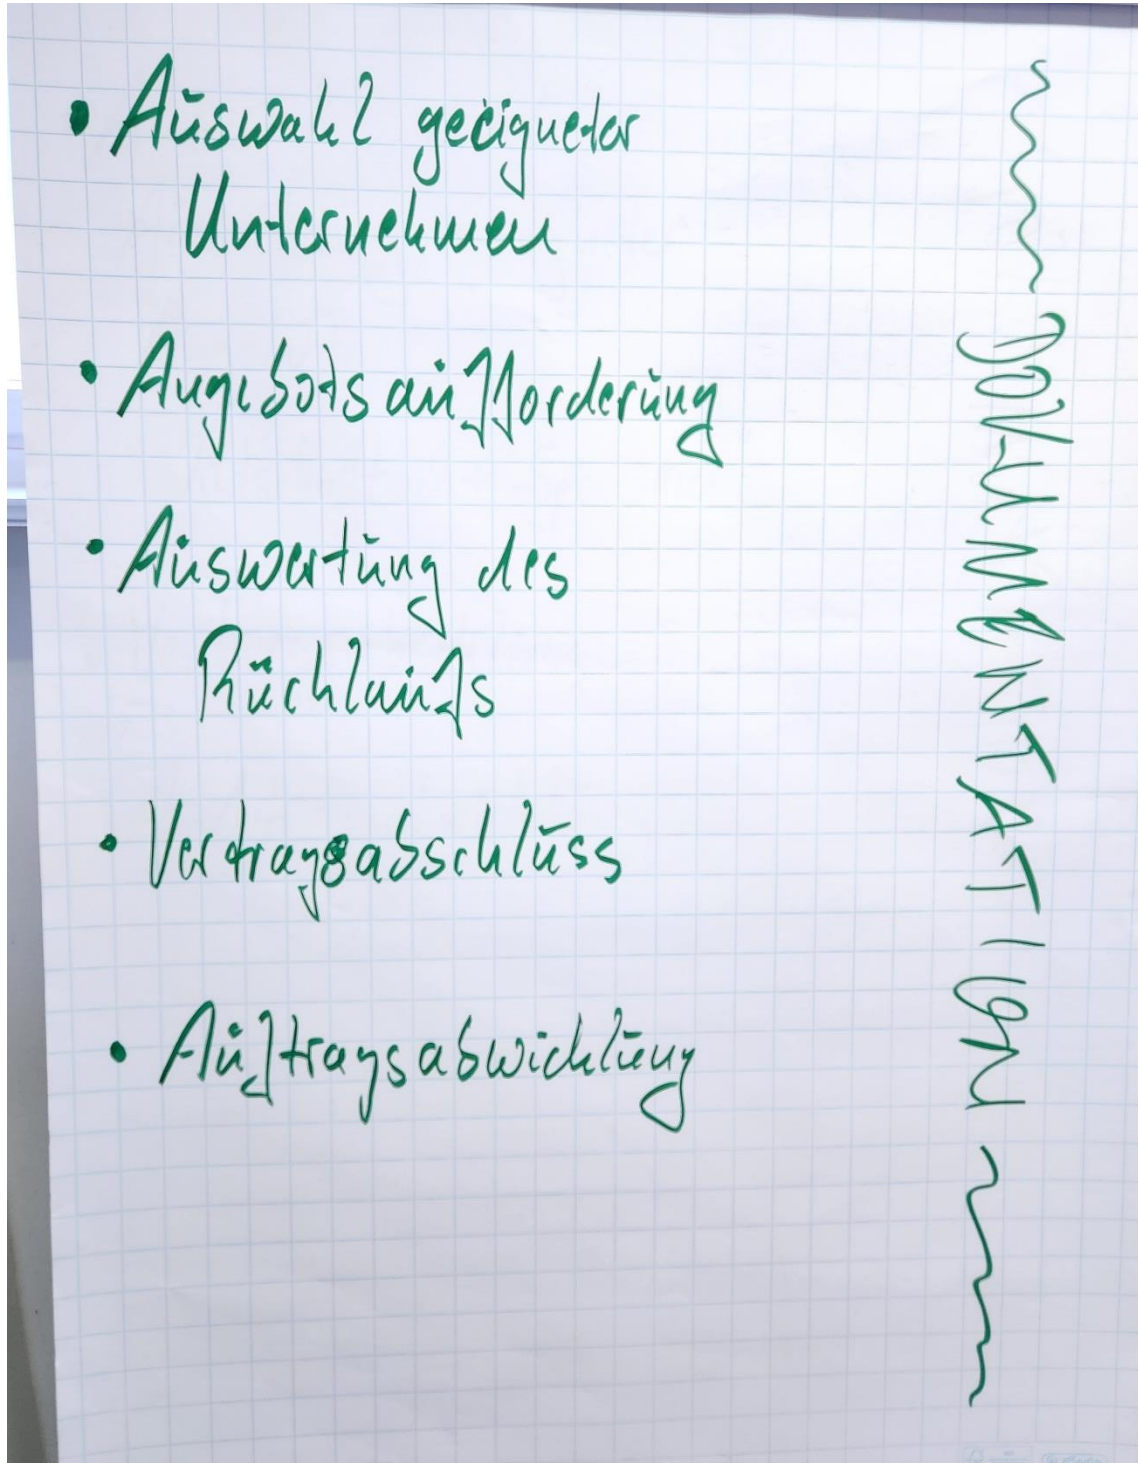 • Auswahl geeigneter
Unternehmen
• Angebotsaufforderung
• Auswertung des
Rücklaufs
• Vertragsabschluss
• Auftragsabwicklung
DOKUMENTATION